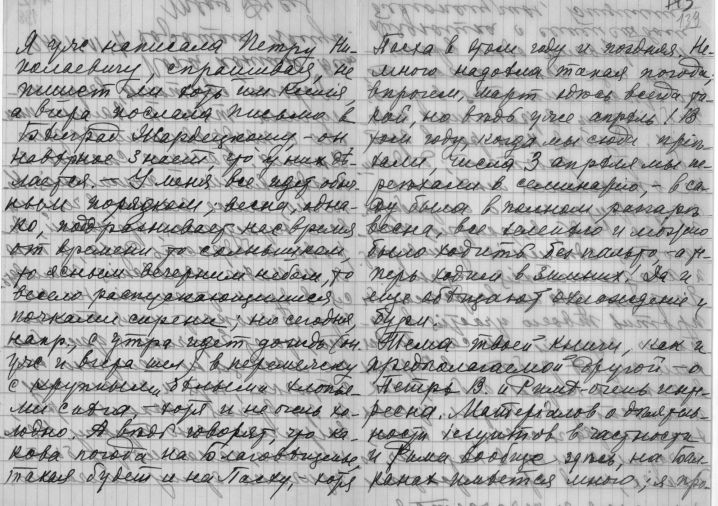 139
Я уже написала Петру Ни-
колаевичу, спрашивая, не
пишет ли хоть им Ксенія,
а вчера послала письма в
Бѣлград Жардецкому, – он
навѣрное знает что у них дѣ-
лается. – У меня все идет обыч-
ным порядком; весна, одна-
ко, поддразнивает нас время
от времени то солнышком,
то ясным вечерним небом, то
весело распускающимися
почками сирени; но сегодня,
напр., с утра идет дождь (он
уже и вчера шел) в перемежку
с крупными хлопья-
ми снѣга, – хотя и не очень хо-
лодно. А вѣдь говорят, что ка-
кова погода на Благовѣщенье,
такая будет и на Пасху, – хотя
Пасха в этом году и поздняя. Не-
много надоѣла такая погода;
впрочем, март здѣсь всегда та-
кой, но вѣдь уже апрѣль! В
том году, когда мы сюда пріѣ-
хали числа 3 апрѣля мы пе-
реѣхали в семинарію, – в са-
ду была в полном разгарѣ
весна, все зеленѣло и можно
было ходить без пальто, – а те-
перь ходим в зимних. Да и
еще обѣщают охлажденіе и
бури.
Тема твоей книги, как и
предполагаемой другой – о
Петрѣ В. и Римѣ – очень инте-
ресна. Матеріалов о дѣятель-
ности іезуитов в частности
и Рима вообще здѣсь, на Бал-
канах имѣется много; я про-